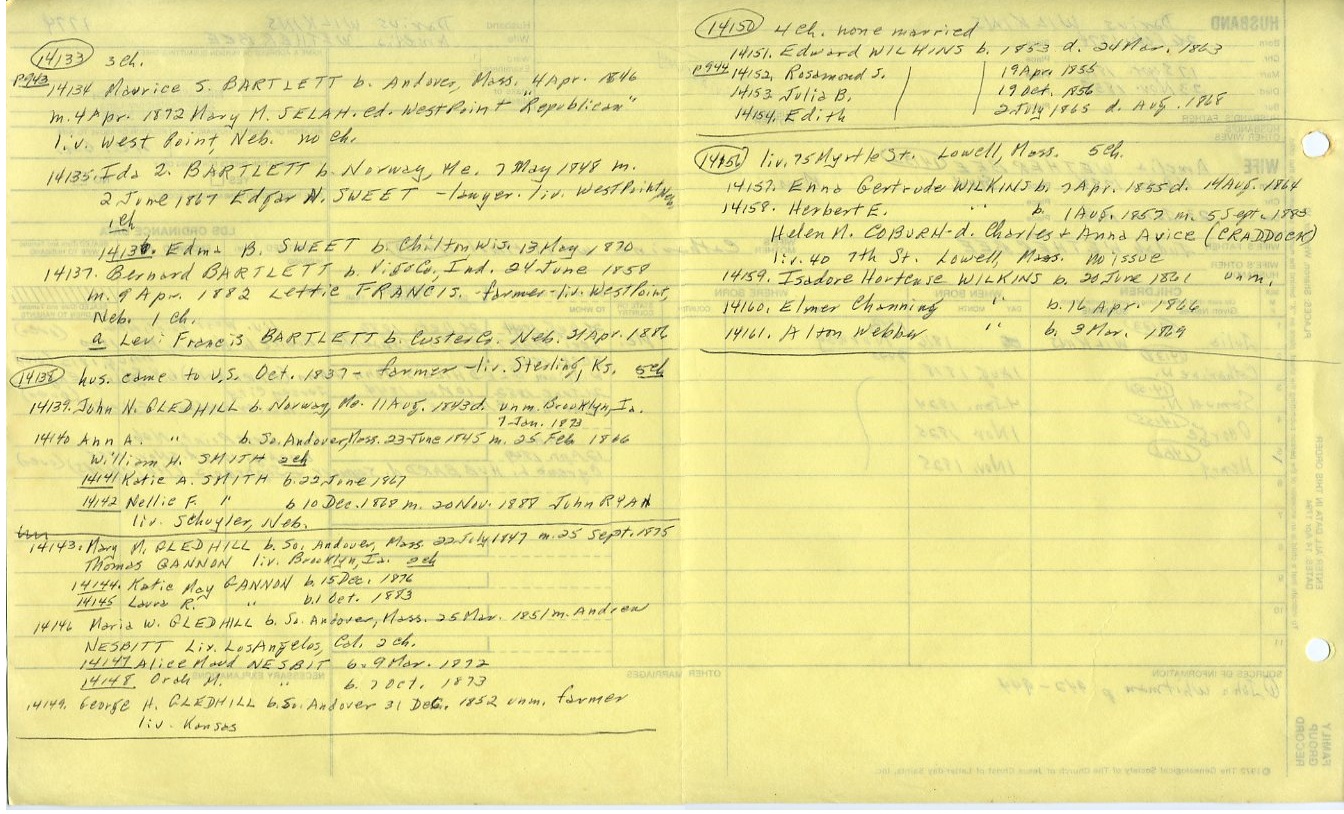 14133 3 ch.
P943
14134 Maurice S. BARTLETT b. Andover, Mass. 4 Apr. 1846
m. 4 Apr. 1872 Mary M. SELAH. ed. West Point "Republican"
liv. West Point, Neb. no ch.
14135. Ida L. BARTLETT b. Norway, Me. 7 May 1848 m.
2 June 1867 Edgar N. SWEET - lawyer. liv. West Point, Neb.
1 ch
14136. Edma B. SWEET b. Chilton Wis. 13 May 1870
14137. Bernard BARTLETT b. Vigo Co, Ind. 24 June 1858
m. 9 Apr. 1882 Lettie FRANCIS. - farmer - liv. West Point,
Neb. 1 ch.
a Levi Francis BARTLETT b. Custer Co. Neb. 21 Apr. 1886
14138 hus. came to U.S. Oct. 1837 - farmer - liv. Sterling, Ks. 5 ch
14139. John N. GLEDHILL b. Norway, Me. 11 Aug. 1843 d. unm. Brooklyn, Ia.
7 Jan. 1873
14140 Ann A. " b. So. Andover, Mass. 23 June 1845 m. 25 Feb 1866
William H. SMITH 2 ch
14141 Katie A. SMITH b. 22 June 1867
14142 Nellie F. " b 10 Dec. 1868 m. 20 Nov. 1888 John RYAN
liv. Schuyler, Neb.
14143. Mary M. GLEDHILL b. So. Andover, Mass. 22 July 1847 m. 25 Sept. 1875
Thomas GANNON liv. Brooklyn, Ia. 2 ch
14144. Katie May GANNON b. 15 Dec. 1876
14145 Laura R. " b. 1 Oct. 1883
14146 Maria W. GLEDHILL b. So. Andover, Mass. 25 Mar. 1851 m. Andrew
NESBITT Liv. Los Angelos, Cal. 2 ch.
14147 Alice Maud NESBIT b. 9 Mar. 1872
14148 Orah M. " b. 7 Oct. 1873
14149. George H. GLEDHILL b. So. Andover 31 Dec. 1852 unm. farmer
liv. Kansas
14150 4 ch. none married
14151. Edward WILKINS b. 1853 d. 24 Mar. 1863
P944 14152. Rosamond J. 19 Apr. 1855
14153 Julia B. 19 Oct. 1856
14154. Edith 2 July 1865 d. Aug. 1868
14156 liv. 75 Myrtle St. Lowell, Mass. 5 ch.
14157. Enna Gertrude WILKINS b. 7 Apr. 1855 d. 14 Aug. 1864
14158. Herbert E. " b. 1 Aug. 1857 m. 5 Sept. 1883
Helen M. COBURH - d. Charles + Anna Avice (CRADDOCK)
liv. 40 7th St. Lowell, Mass. no issue
14159. Isadore Hortense WILKINS b. 20 June 1861 unm.
14160. Elmer Channing " b. 16 Apr. 1866
14161. Alton Webber " b. 3 Mar. 1869